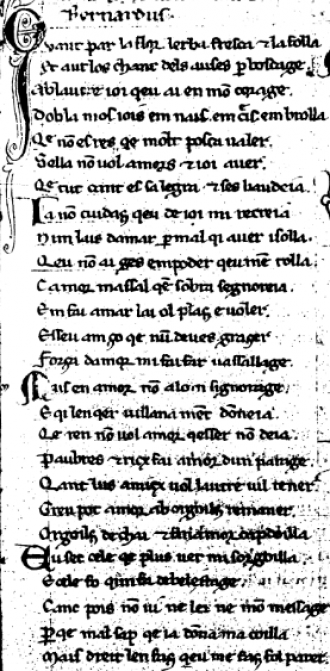 Bernardus.
Quant par la flor lerba fresca & la folla
Et aut los chant dels auses p boscage.
ablautre ioi qeu ai en mō corage.
Dobla mos iois em nais. em cris. em brolla
Qe nō es res. qe molt posca ualer.
Sella nō uol amors & ioi auer.
Qe tut cant es salegra & ses baudeia.
Ia nō cuidas qeu de ioi mi recreia
Nim lais damar p mal qi auer isolla.
Qeu nō ai ges en poder qeu mē tolla.
Camor massal qē sobra segnoreia.
Em fai amar lai ol plas e uoler.
Esseu am so qe nū deues
Forsa damor mi fai far uassallage.
Mais en amor nō a hom signorage.
E qi lenqer uillana mēt dōneia.
Qe ren nō uol amor qesser nō deia.
Paubres & rics fai amor dun parage
Qant lus amics uol lautre uil tener.
Greu pot amor ab orgoills remaner.
Orgoills dechai & finamor
Eu sec cele qe plus uer mi sorgoilla
E cele fo
Canc pois nō ui ne lei ne mō message
P qe mal sap qe ia dōna ma coilla
Mais dreit len fas qeu me fas fol parer